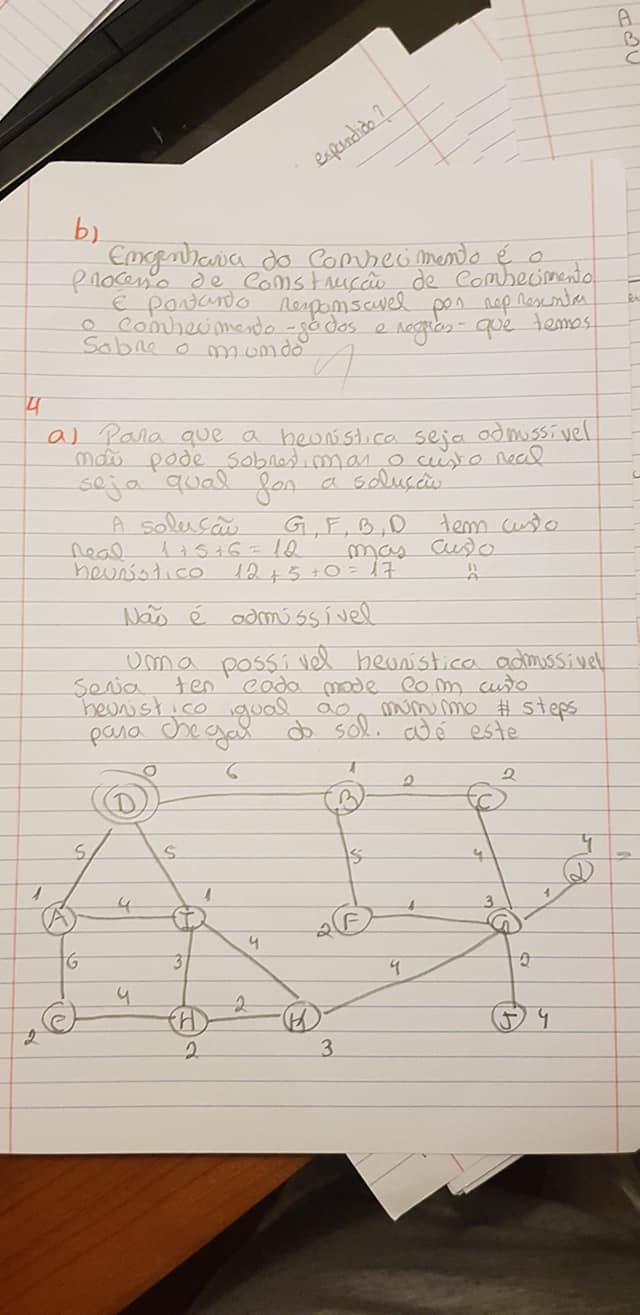 A
B
C
expandido?
b)
Engenharia do Conhecimento é o
processo de construção de conhecimento
É portando responsavel por representar
o conhecimento - dados e regras - que temos
sobre o mundo
4
a) Para que a heurística seja admissível
não pode sobrestimar o custo real
seja qual for a solução
A solução G, F, B, D tem custo
real 1+5+6=12 mas custo
heurístico 12+5+0=17
Não é admissível
Uma possível heurística admissível
seria ter cada node com custo
heurístico igual ao mínimo # steps
para chegar do sol. até este
0 6 1 2 2
D B C
5 5 5 4 4
1 4 1 1 3 1
A I 2 F G
6 3 4 4 2
4 2
C H M J 4
2 2 3